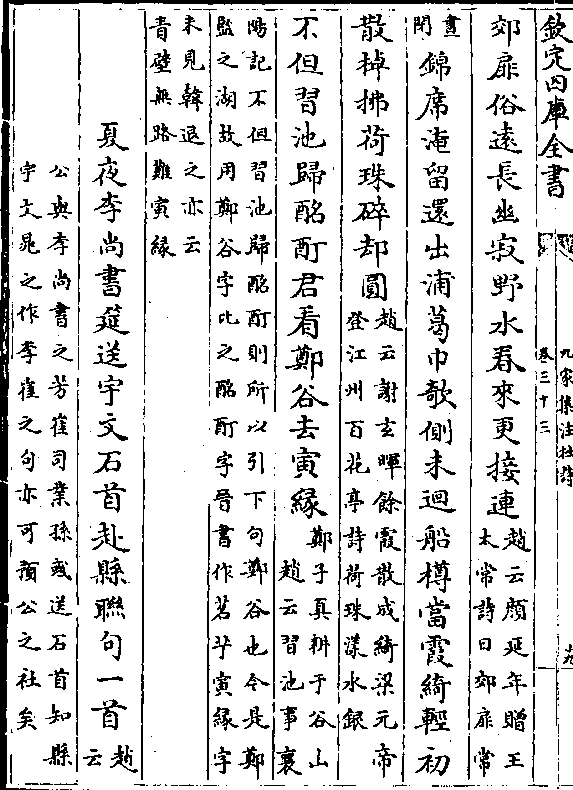 欽定四庫全書
九家集注杜詩
卷三十三
十九
郊扉俗遠長幽寂野水春來更接連
趙云顔延年贈王
太常詩曰郊扉常
晝
閉
錦席淹留還出浦葛巾欹側未迴船樽當霞綺輕初
散棹拂荷珠碎却圓
趙云謝玄暉餘霞散成綺梁元帝
登江州百花亭詩荷珠漾水銀
不但習池歸酩酊君看鄭谷去寅縁
鄭子真耕于谷山
趙云習池事襄
陽記不但習池歸酩酊則所以引下句鄭谷也今是鄭
監之湖故用鄭谷字比之酩酊字晉書作茗艼寅縁字
未見韓退之亦云
青壁無路難寅縁
夏夜李尚書筵送宇文石首赴縣聯句一首
趙
云
公與李尚書之芳崔司業孫彧送石首知縣
宇文晁之作李崔之句亦可預公之社矣